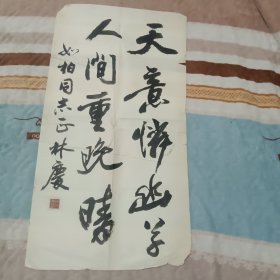 天意怜幽草
人间重晚晴
如柏同志正 林庆